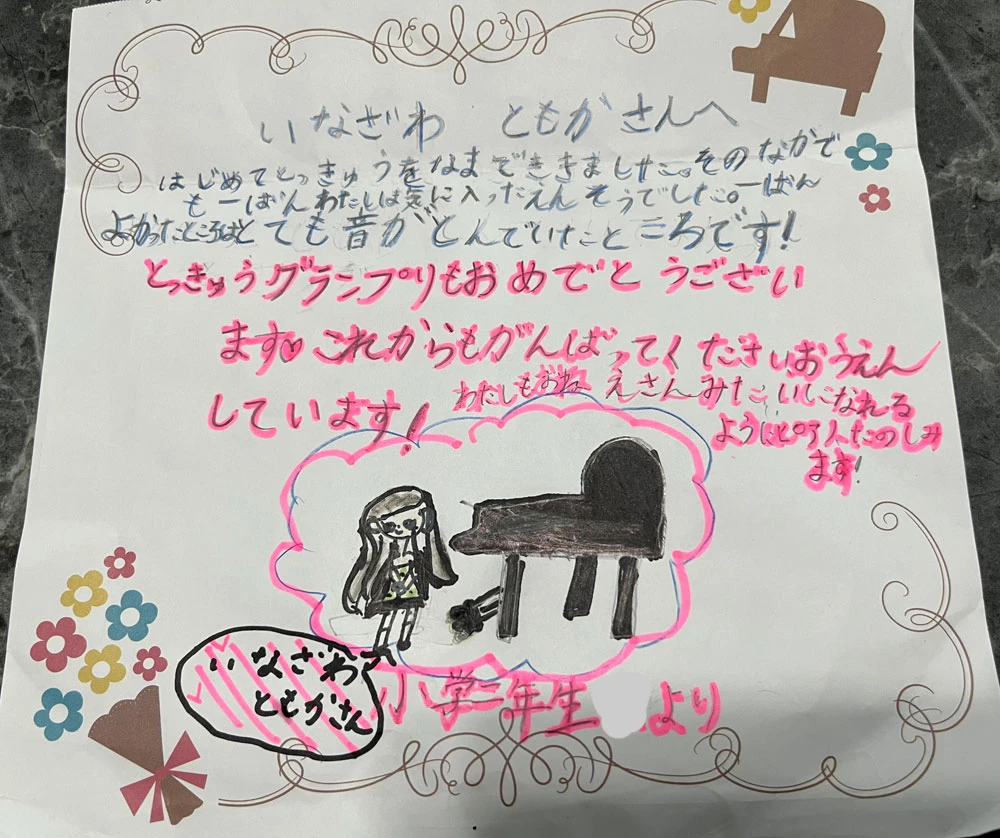 いなざわ ともかさんへ
はじめてとっきゅうをなまでききました。そのなかで
も一ばんわたしは気に入ったえんそうでした。一ばん
よかったところはとても音がとんでいたところです!
とっきゅうグランプリもおめでとうござい
ます♥これからもがんばってくださいおうえん
しています!
わたしもおねえさんみたいになれる
ようにピアノたのしみ
ます!
いなざわ
ともかさん
小学二年生 より